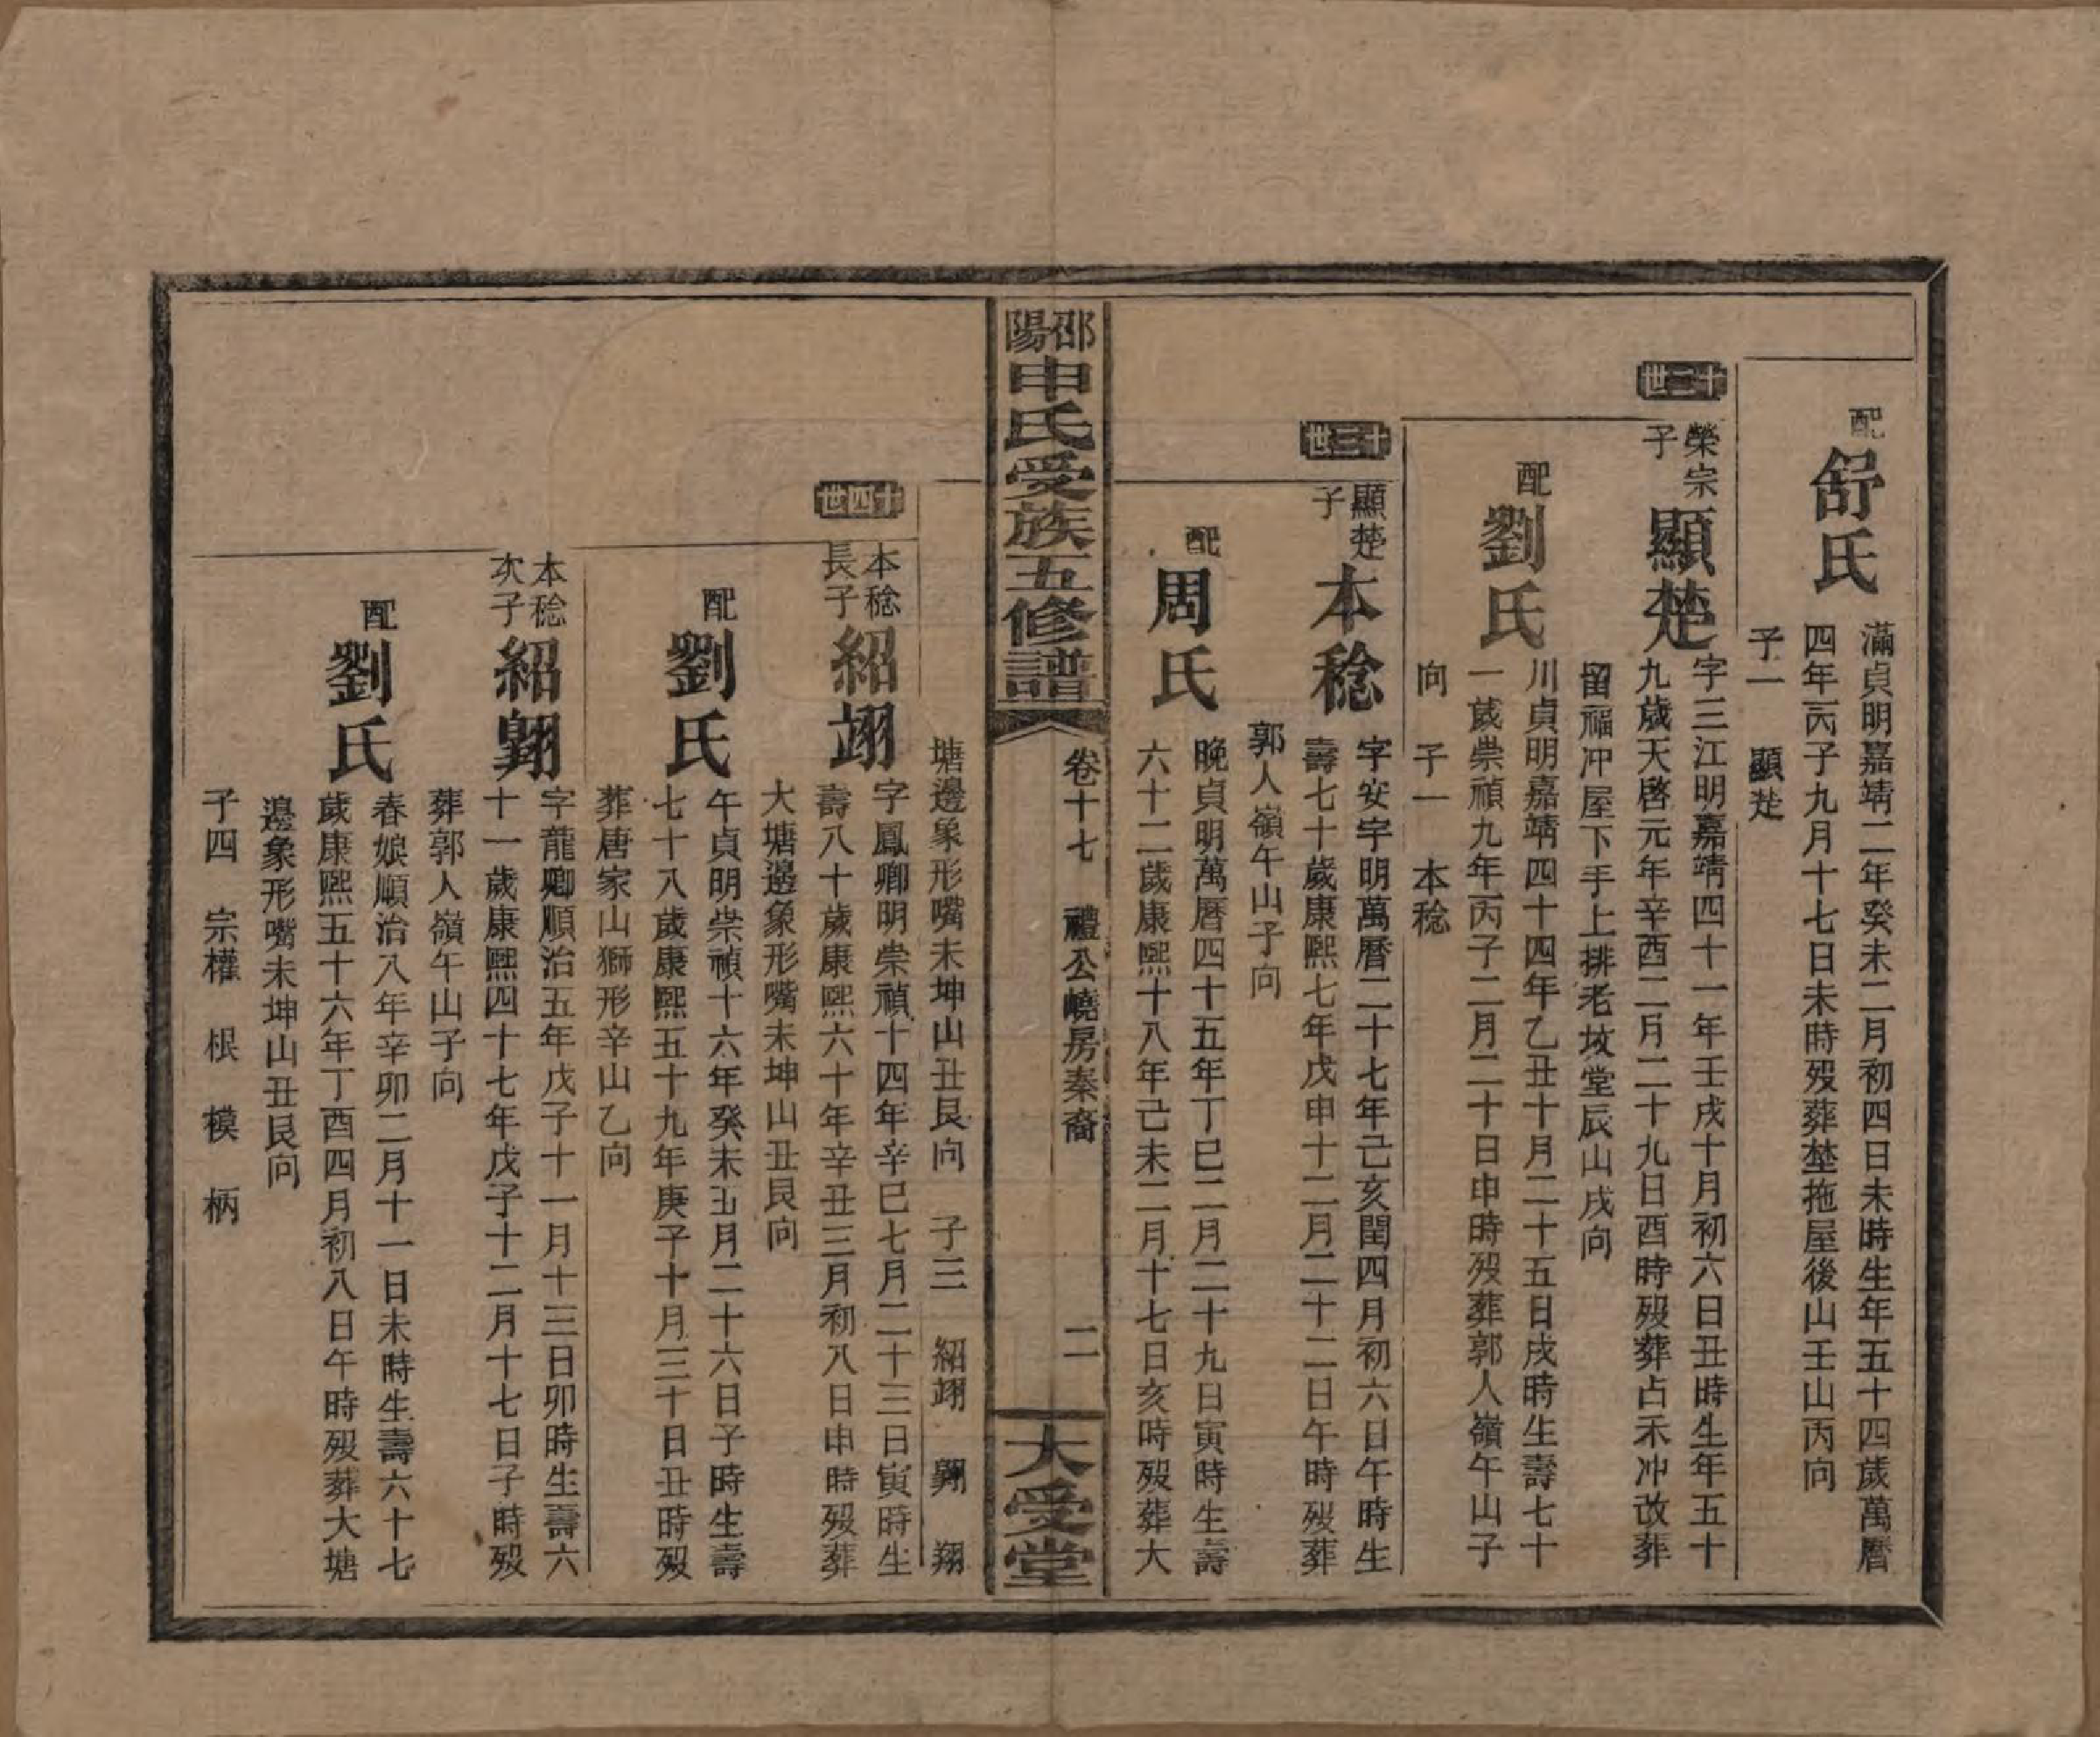 配
舒氏
滿貞明嘉靖二年癸未二月初四日未時生年五十四歲萬曆
四年丙子九月十七日未時歿葬埜拖屋後山壬山丙向
子一　顯楚
十二世
榮宗
子
顯楚
字三江明嘉靖四十一年壬戌十月初六日丑時生年五十
九歲天啓元年辛酉二月二十九日酉時歿葬占禾冲改葬
留福冲屋下手上排老坟堂辰山戌向
配
劉氏
川貞明嘉靖四十四年乙丑十月二十五日戌時生壽七十
一歲崇禎九年丙子二月二十日申時歿葬郭人嶺午山子
向　子一　本稔
十三世
顯楚
子
本稔
字安宇明萬曆二十七年己亥閏四月初六日午時生
壽七十歲康熙七年戊申十二月二十二日午時歿葬
郭人嶺午山子向
配
周氏
晚貞明萬曆四十五年丁巳二月二十九日寅時生壽
六十二歲康熙十八年己未二月十七日亥時歿葬大
邵陽申氏受族五修譜
卷十七　禮公嶢房秦裔　二
大受堂
塘邊象形嘴未坤山丑艮向　子三　紹翊　翺　翔
十四世
本稔
長子
紹翊
字鳳卿明崇禎十四年辛巳七月二十三日寅時生
壽八十歲康熙六十年辛丑三月初八日申時歿葬
大塘邊象形嘴未坤山丑艮向
配
劉氏
午貞明崇禎十六年癸未五月二十六日子時生壽
七十八歲康熙五十九年庚子十月三十日丑時歿
葬唐家山獅形辛山乙向
本稔
次子
紹翺
字龍卿順治五年戊子十一月十三日卯時生壽六
十一歲康熙四十七年戊子十二月十七日子時歿
葬郭人嶺午山子向
配
劉氏
春娘順治八年辛卯二月十一日未時生壽六十七
歲康熙五十六年丁酉四月初八日午時歿葬大塘
邊象形嘴未坤山丑艮向
子四　宗權　根　模　柄